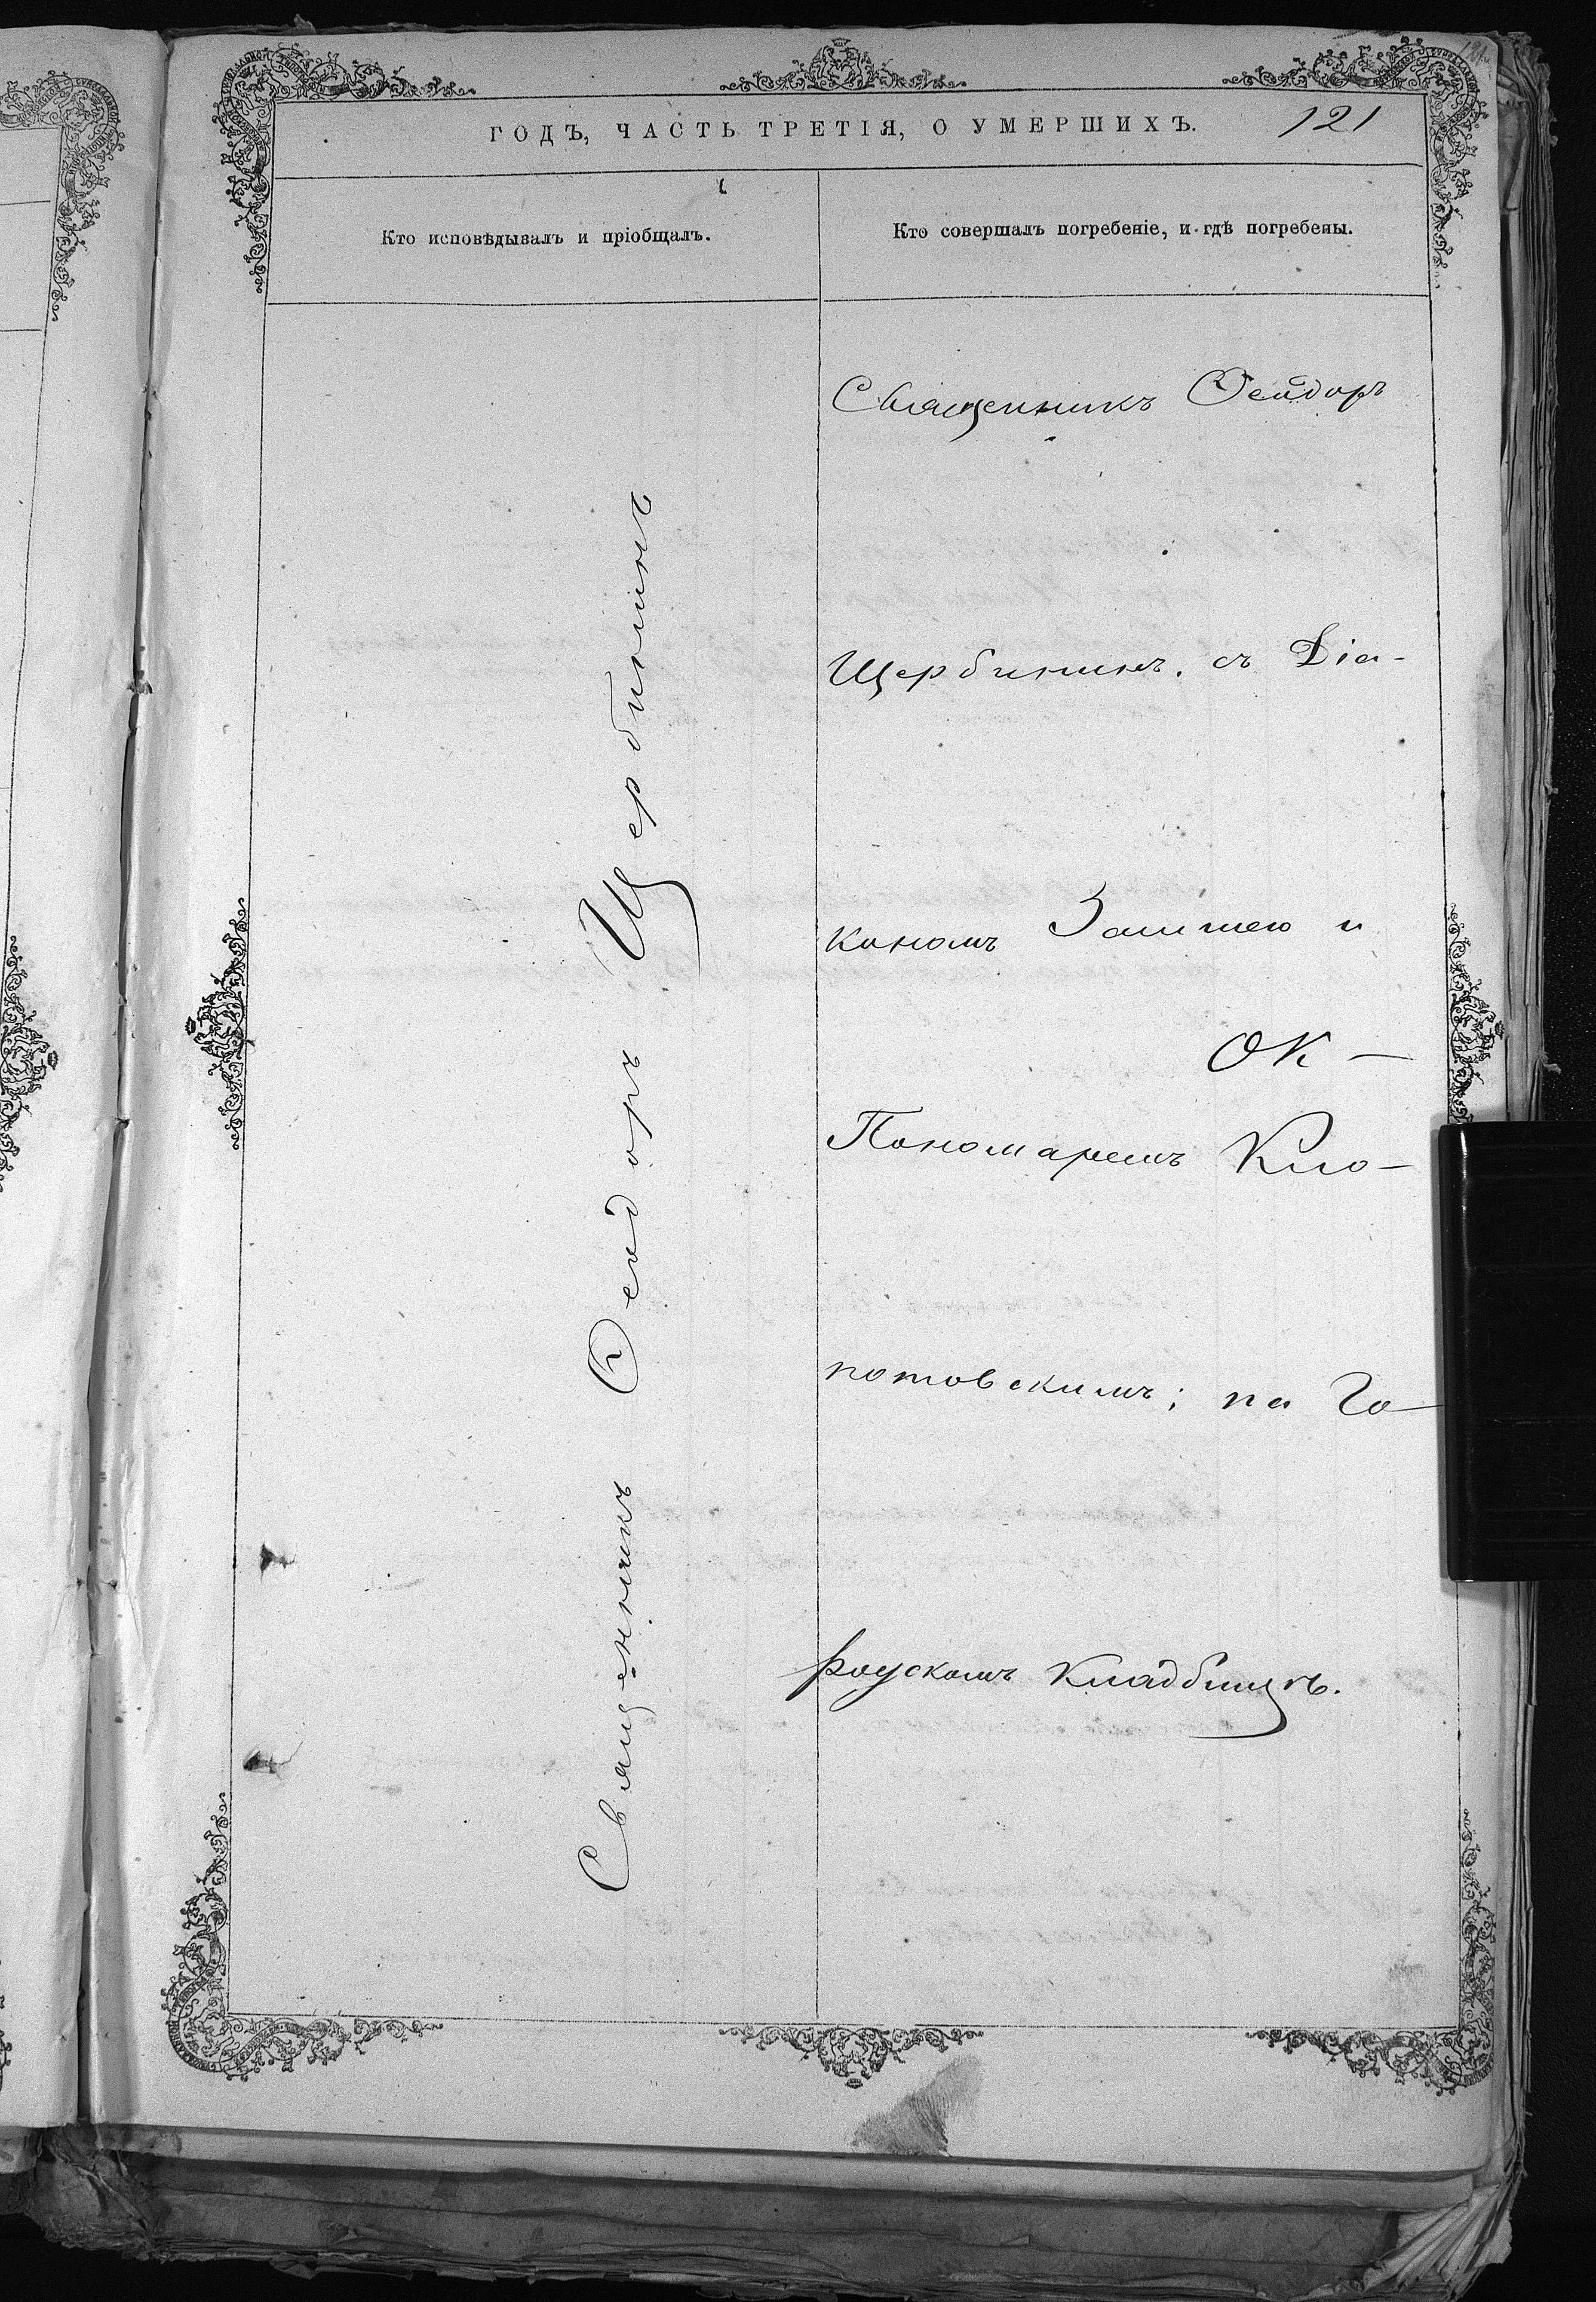 121
ГОДЪ, ЧАСТЬ ТРЕТІЯ, О УМЕРШИХЪ.
Кто исповѣдывалъ и пріобщалъ.
Кто совершалъ погребеніе, и гдѣ погребены.
Священникъ Ѳеодоръ Щербининъ
Священникъ Ѳеодоръ
Щербининъ. съ Діа-
кономъ и
Пономаремъ Кло-
потовскимъ; на Го-
родскомъ Кладбищѣ.